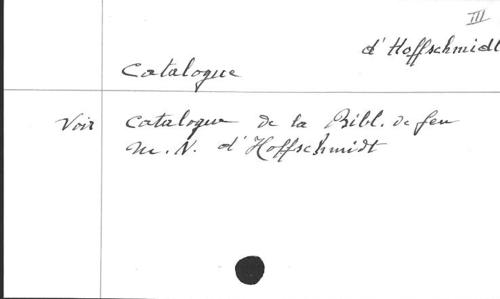 III
d'Hoffschmidt
Catalogue
Voir Catalogue de la Bibl. de feu
M. N. d'Hoffschmidt